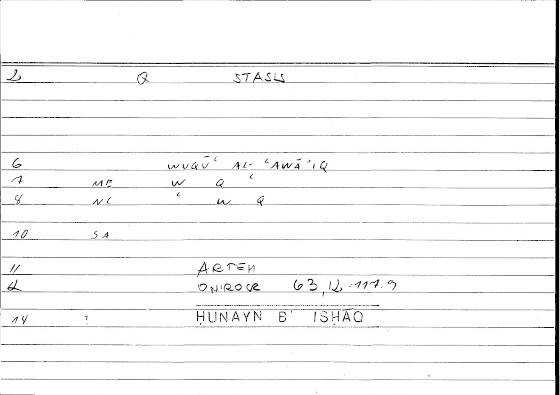 2 Q STASIS
6 WUQŪʿ AL-ʿAWĀʾIQ
7 ME W Q ʿ
8 NC ʿ W Q
10 SA
11 ARTEM
12 ONIROCR 63,12-117.9
14 ? ḤUNAYN B' ISḤĀQ